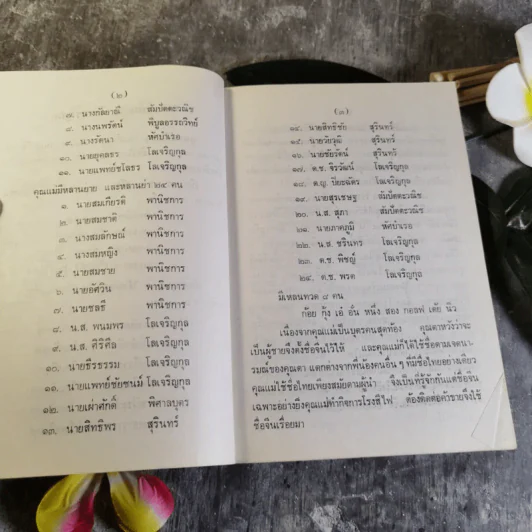 (๒)
๗. นางกัลยาณี สัมปัตตะวณิช
๘. นางนพรัตน์ พิบูลอรรถวิทย์
๙. นางรัตนา หัศบำเรอ
๑๐. นายยุคลธร โลเจริญกุล
๑๑. นายแพทย์โสธร โลเจริญกุล
คุณแม่มีหลานยาย และหลานย่า ๒๔ คน
๑ นายสมเกียรติ พานิชการ
๒. นายสมชาติ พานิชการ
๓. นางสมลักษณ์ พานิชการ
๔. นางสมหญิง พานิชการ
๕. นายสมชาย พานิชการ
๖. นายอัศวิน พานิชการ
๗. นายชลธี พานิชการ
๘. น.ส. พนมพร โลเจริญกุล
๙. น.ส. ศิริศิล โลเจริญกุล
๑๐. นายธีรธรรม โลเจริญกุล
๑๑. นายแพทย์ชัยชนม์ โลเจริญกุล
๑๒. นายเผ่าศักดิ์ พิศาลบุตร
๑๓. นายสิทธิพร สุรินทร์
(๓)
๑๔. นายสิทธิชัย สุรินทร์
๑๕. นายวัยวุฒิ สุรินทร์
๑๖. นายชัยรัตน์ สุรินทร์
๑๗. ด.ช. จิรวัฒน์ โลเจริญกุล
๑๘. ด.ญ. ปิยะฉัตร โลเจริญกุล
๑๙. นายสุรเชษฐ สัมปัตตะวณิช
๒๐. น.ส. สุภา สัมปัตตะวณิช
๒๑. นายภาคภูมิ หัศบำเรอ
๒๒. น.ส. ชรินทร โลเจริญกุล
๒๓. ด.ช. พิชญ์ โลเจริญกุล
๒๔. ด.ช. พรต โลเจริญกุล
มีเหลนทวด ๘ คน
ก้อย กุ้ง เอ๋ อั๋น หนึ่ง สอง กอลฟ เต้ย นิว
เนื่องจากคุณแม่เป็นบุตรคนสุดท้อง คุณตาหวังว่าจะ
เป็นผู้ชายจึงตั้งชื่อจีนไว้ให้ และคุณแม่ก็ได้ใช้ชื่อตามเจตนา-
รมณ์ของคุณตา แตกต่างจากพี่น้องคนอื่น ๆ ที่มีชื่อไทยอย่างเดียว
คุณแม่ใช้ชื่อไทยเพียงสมัยตามผู้นำ จึงเป็นที่รู้จักกันแต่ชื่อจีน
เฉพาะอย่างยิ่งคุณแม่ทำกิจการโรงสีไฟ ต้องติดต่อค้าขายจึงใช้
ชื่อจีนเรื่อยมา